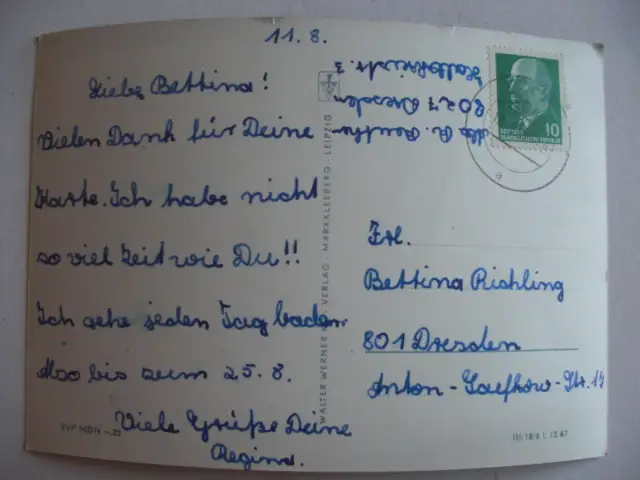 11.8.
Liebe Bettina!
Vielen Dank für Deine
Karte. Ich habe nicht
so viel Zeit wie Du!!
Ich gehe jeden Tag baden.
Also bis zum 25.8.
Viele Grüße Deine
Regina.
EVP MDN -,20
WALTER WERNER VERLAG · MARKKLEEBERG · LEIPZIG
8027 Dresden
10
DEUTSCHE
DEMOKRATISCHE REPUBLIK
Frl.
Bettina Rishling
801 Dresden
Anton-Saefkow-Str. 14
III/18/6 L 15 67